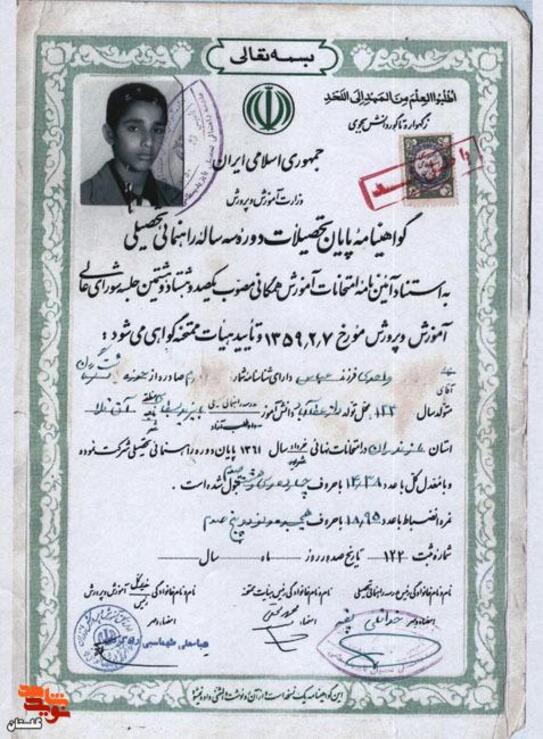 بسمه تعالی
اطلبوا العلم من المهد الی اللحد
ز گهواره تا گور دانش بجوی
جمهوری اسلامی ایران
وزارت آموزش و پرورش
گواهینامهٔ پایان تحصیلات دوره سه ساله راهنمائی تحصیلی
به استناد آئین نامهٔ امتحانات آموزش همگانی مصوب یکصد و هشتاد و هشتمین جلسه شورای عالی
آموزش و پرورش مورخ ۱۳۵۹٫۲٫۷ و تأیید هیأت ممتحنه گواهی می شود :
آقای واحدی فرزند عباس دارای شناسنامه شماره صادره از حوزه
متولد سال محل تولد دانش آموز مدرسه راهنمائی
استان مازندران در امتحانات نهائی خرداد شهریور سال ۱۳۶۱ پایان دوره راهنمائی تحصیلی شرکت نموده
و با معدل کل با عدد ۱۴٫۳۸ با حروف چهارده و سی و هشت صدم قبول شده است .
نمره انضباط با عدد ۱۸٫۹۵ با حروف هیجده و نود و پنج صدم
شماره ثبت ۱۲۲ تاریخ صدور روز ماه سال
نام و نام خانوادگی رئیس مدرسه راهنمائی تحصیلی
نام و نام خانوادگی رئیس هیأت ممتحنه
نام و نام خانوادگی مدیر کل رئیس آموزش و پرورش
امضاء و مهر
امضاء
امضاء و مهر
عباسعلی طهماسبی
این گواهینامه یک نسخه است و از آن رونوشت یا المثنی داده نمیشود
نوید شاهد
گلستان